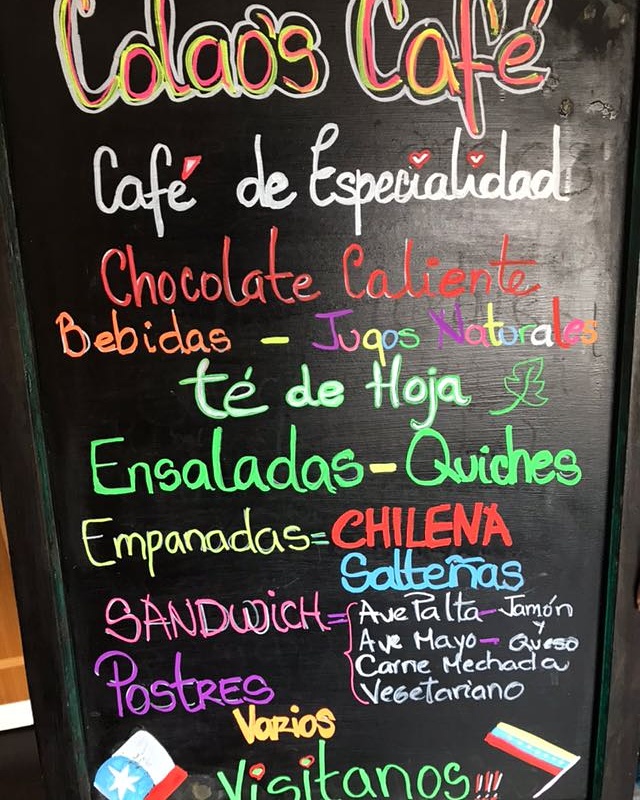 Colao's Café
Café de Especialidad
Chocolate Caliente
Bebidas - Jugos Naturales
té de Hoja
Ensaladas - Quiches
Empanadas = CHILENA
Salteñas
SANDWICH = Ave Palta - Jamón
y
Ave Mayo - Queso
Carne Mechada
Vegetariano
POSTRES
Varios
Visitanos!!!